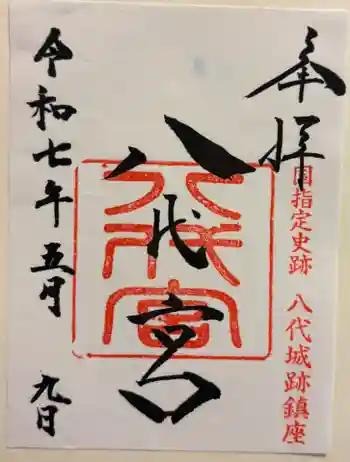 奉拝
国指定史跡 八代城跡鎮座
八代宮
八代宮
令和七年五月九日